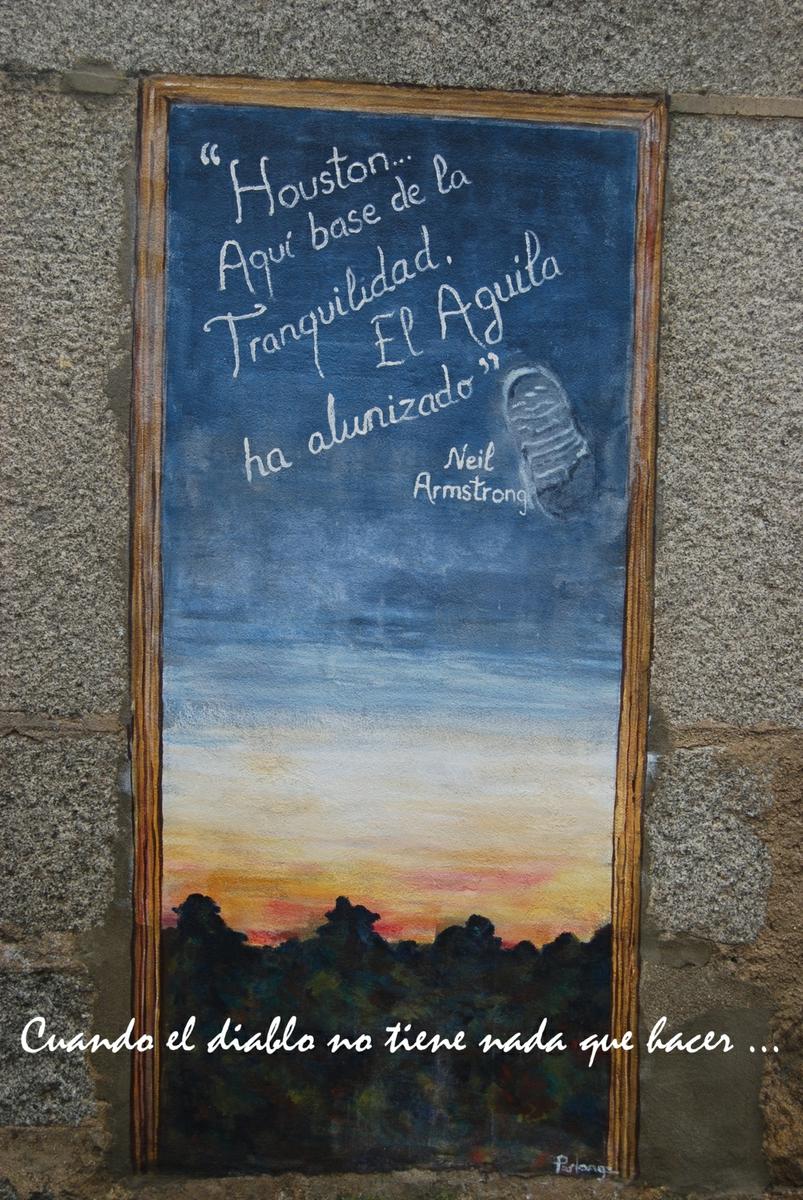 “Houston...
Aquí base de la
Tranquilidad.
El Aguila
ha alunizado”
Neil
Armstrong
Cuando el diablo no tiene nada que hacer ...